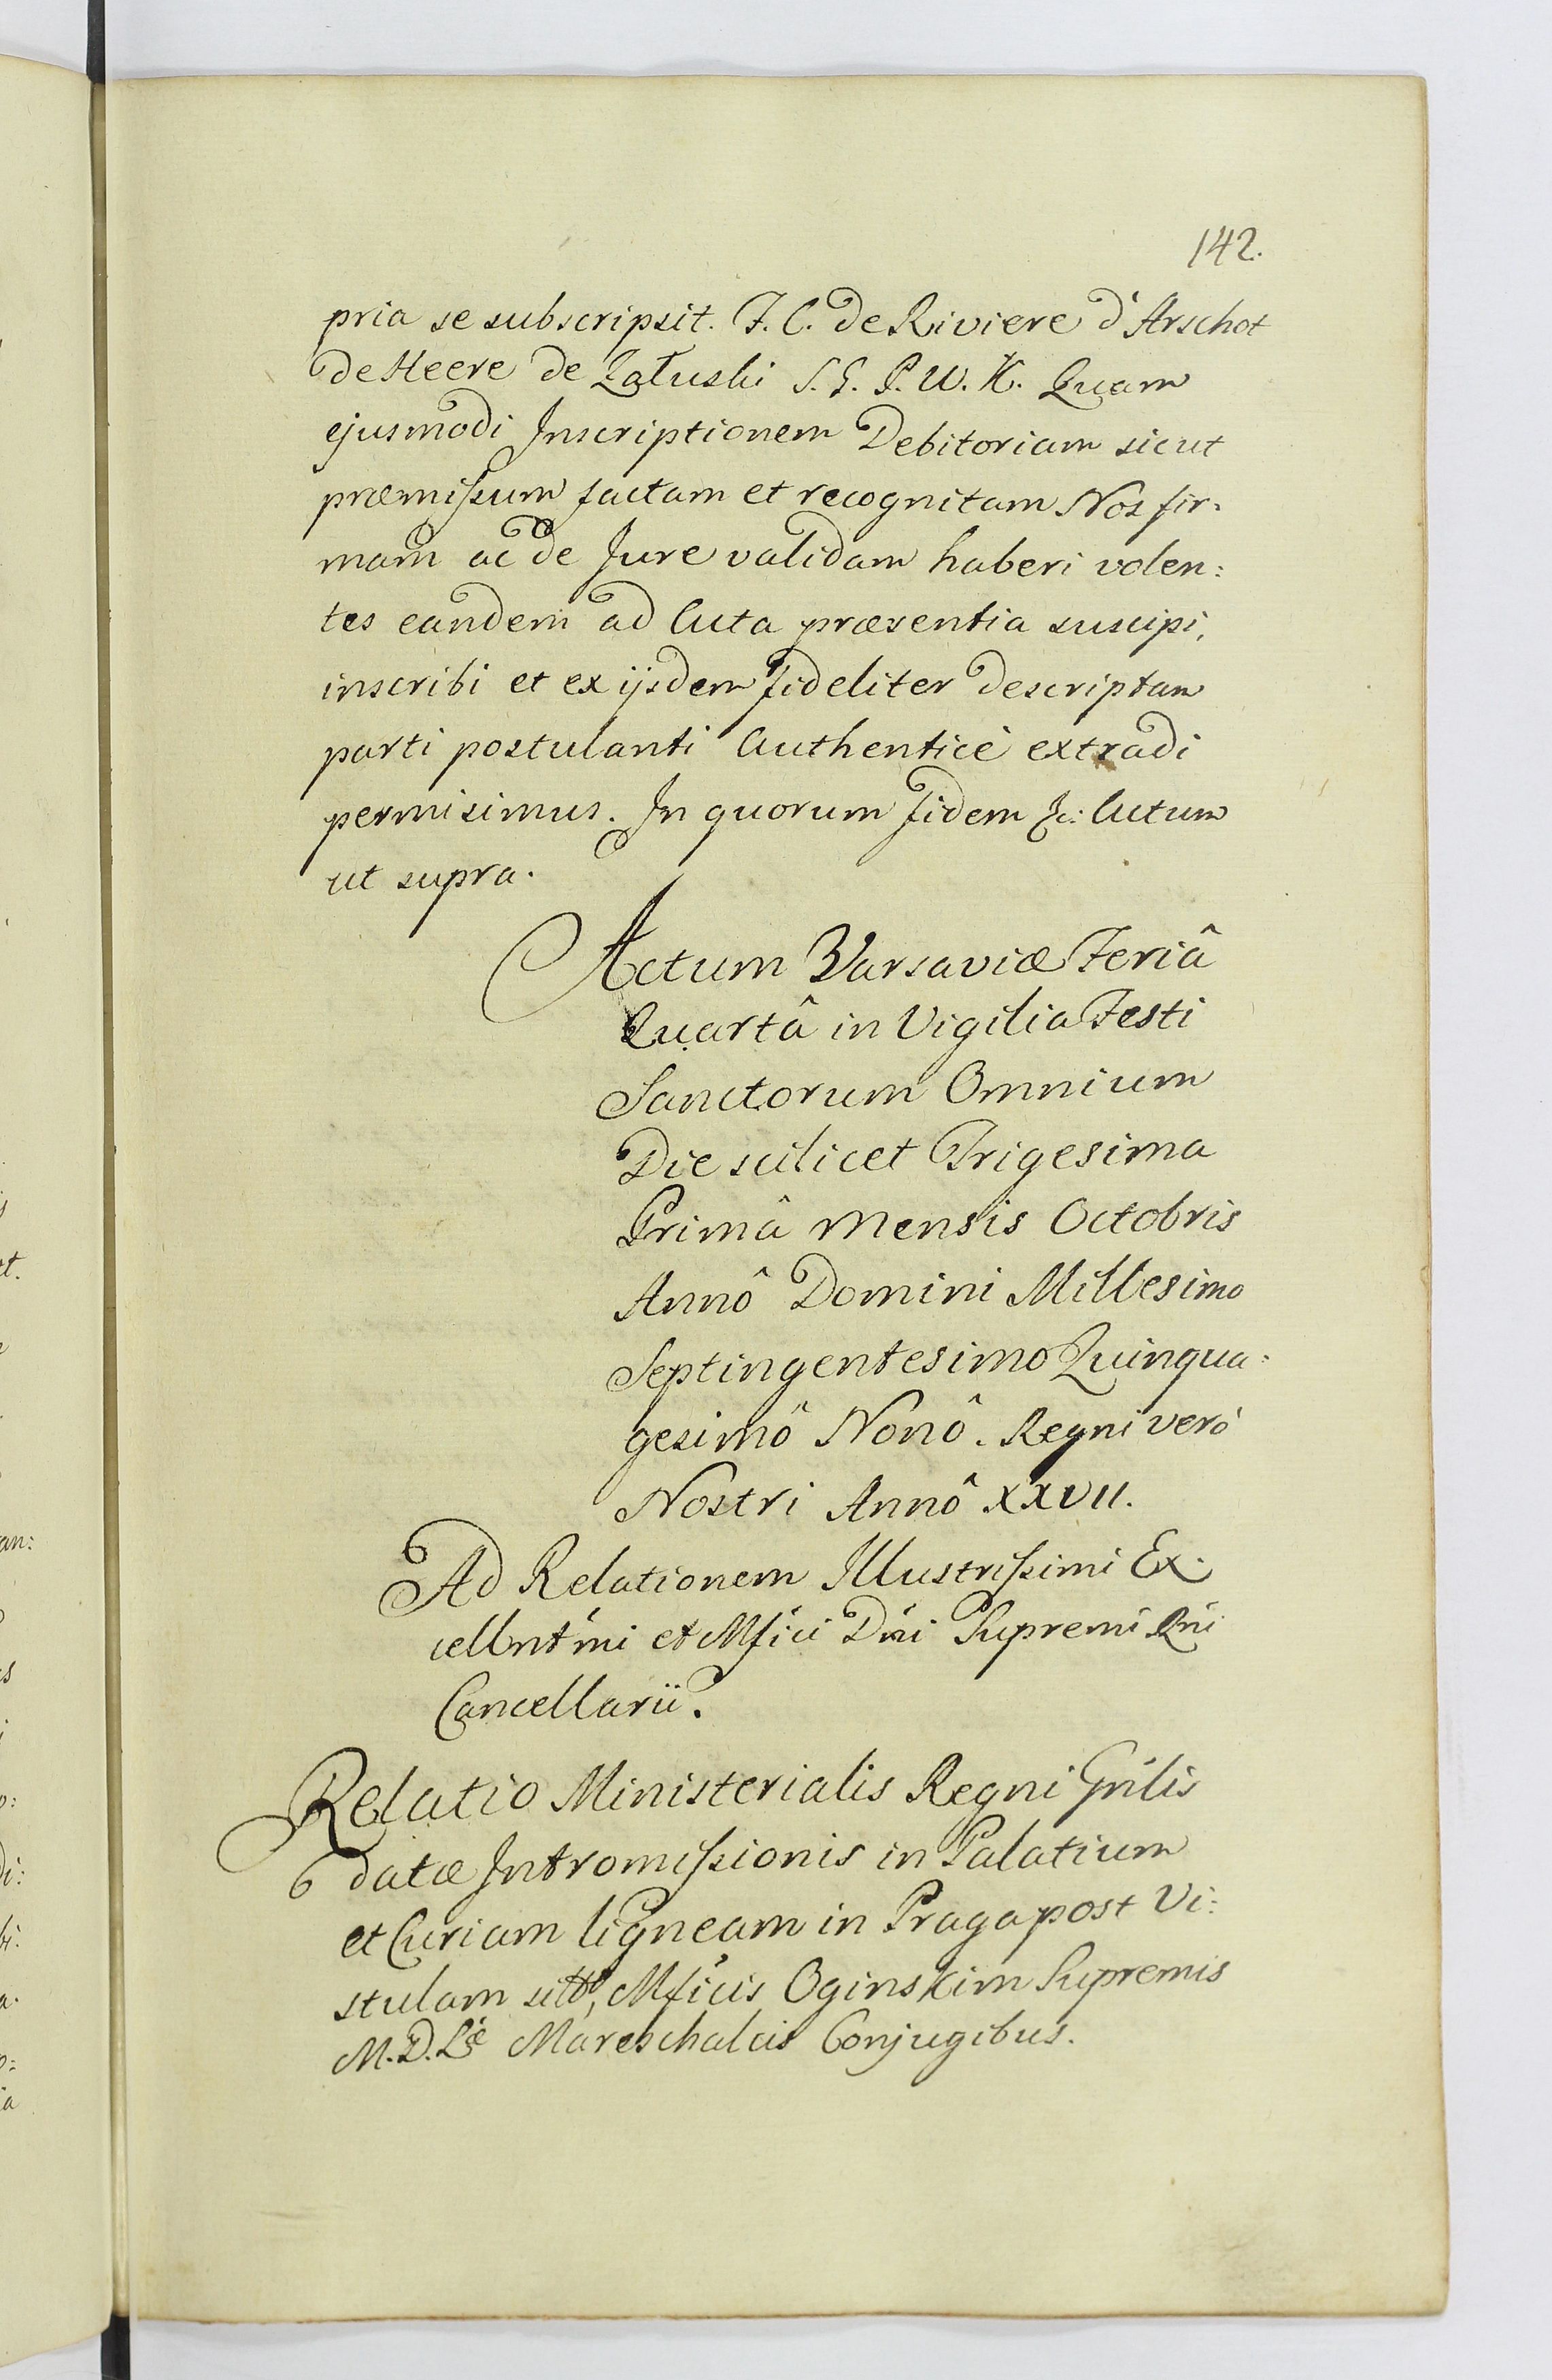 142.
pria se subscripsit. F. C. de Riviere d'Arschot
de Heere de Załuski S. G. P. W. K. Quam
ejusmodi Inscriptionem Debitoriam sicut
præmissum factam et recognitam Nos fir:
mam ac de Jure validam haberi volen:
tes eandem ad Acta præsentia suscipi,
inscribi et ex ijsdem fideliter descriptam
parti postulanti Authenticè extradi
permisimus. In quorum fidem &c: Actum
ut supra.
Actum Varsaviæ Feriâ
Quartâ in Vigilia Festi
Sanctorum Omnium
Die scilicet Trigesima
Primâ Mensis Octobris
Annô Domini Millesimo
Septingentesimo Quinqua:
gesimô Nonô. Regni verò
Nostri Annô XXVII.
Ad Relationem Illustrissimi Ex:
cellntmi et Mfici Dni Supremi Rni
Cancellarii.
Relatio Ministerialis Regni Gnlis
datæ Intromissionis in Palatium
et Curiam ligneam in Praga post Vi:
stulam Mficis Oginskim Supremis
M. D. L. Mareschalcis Conjugibus.